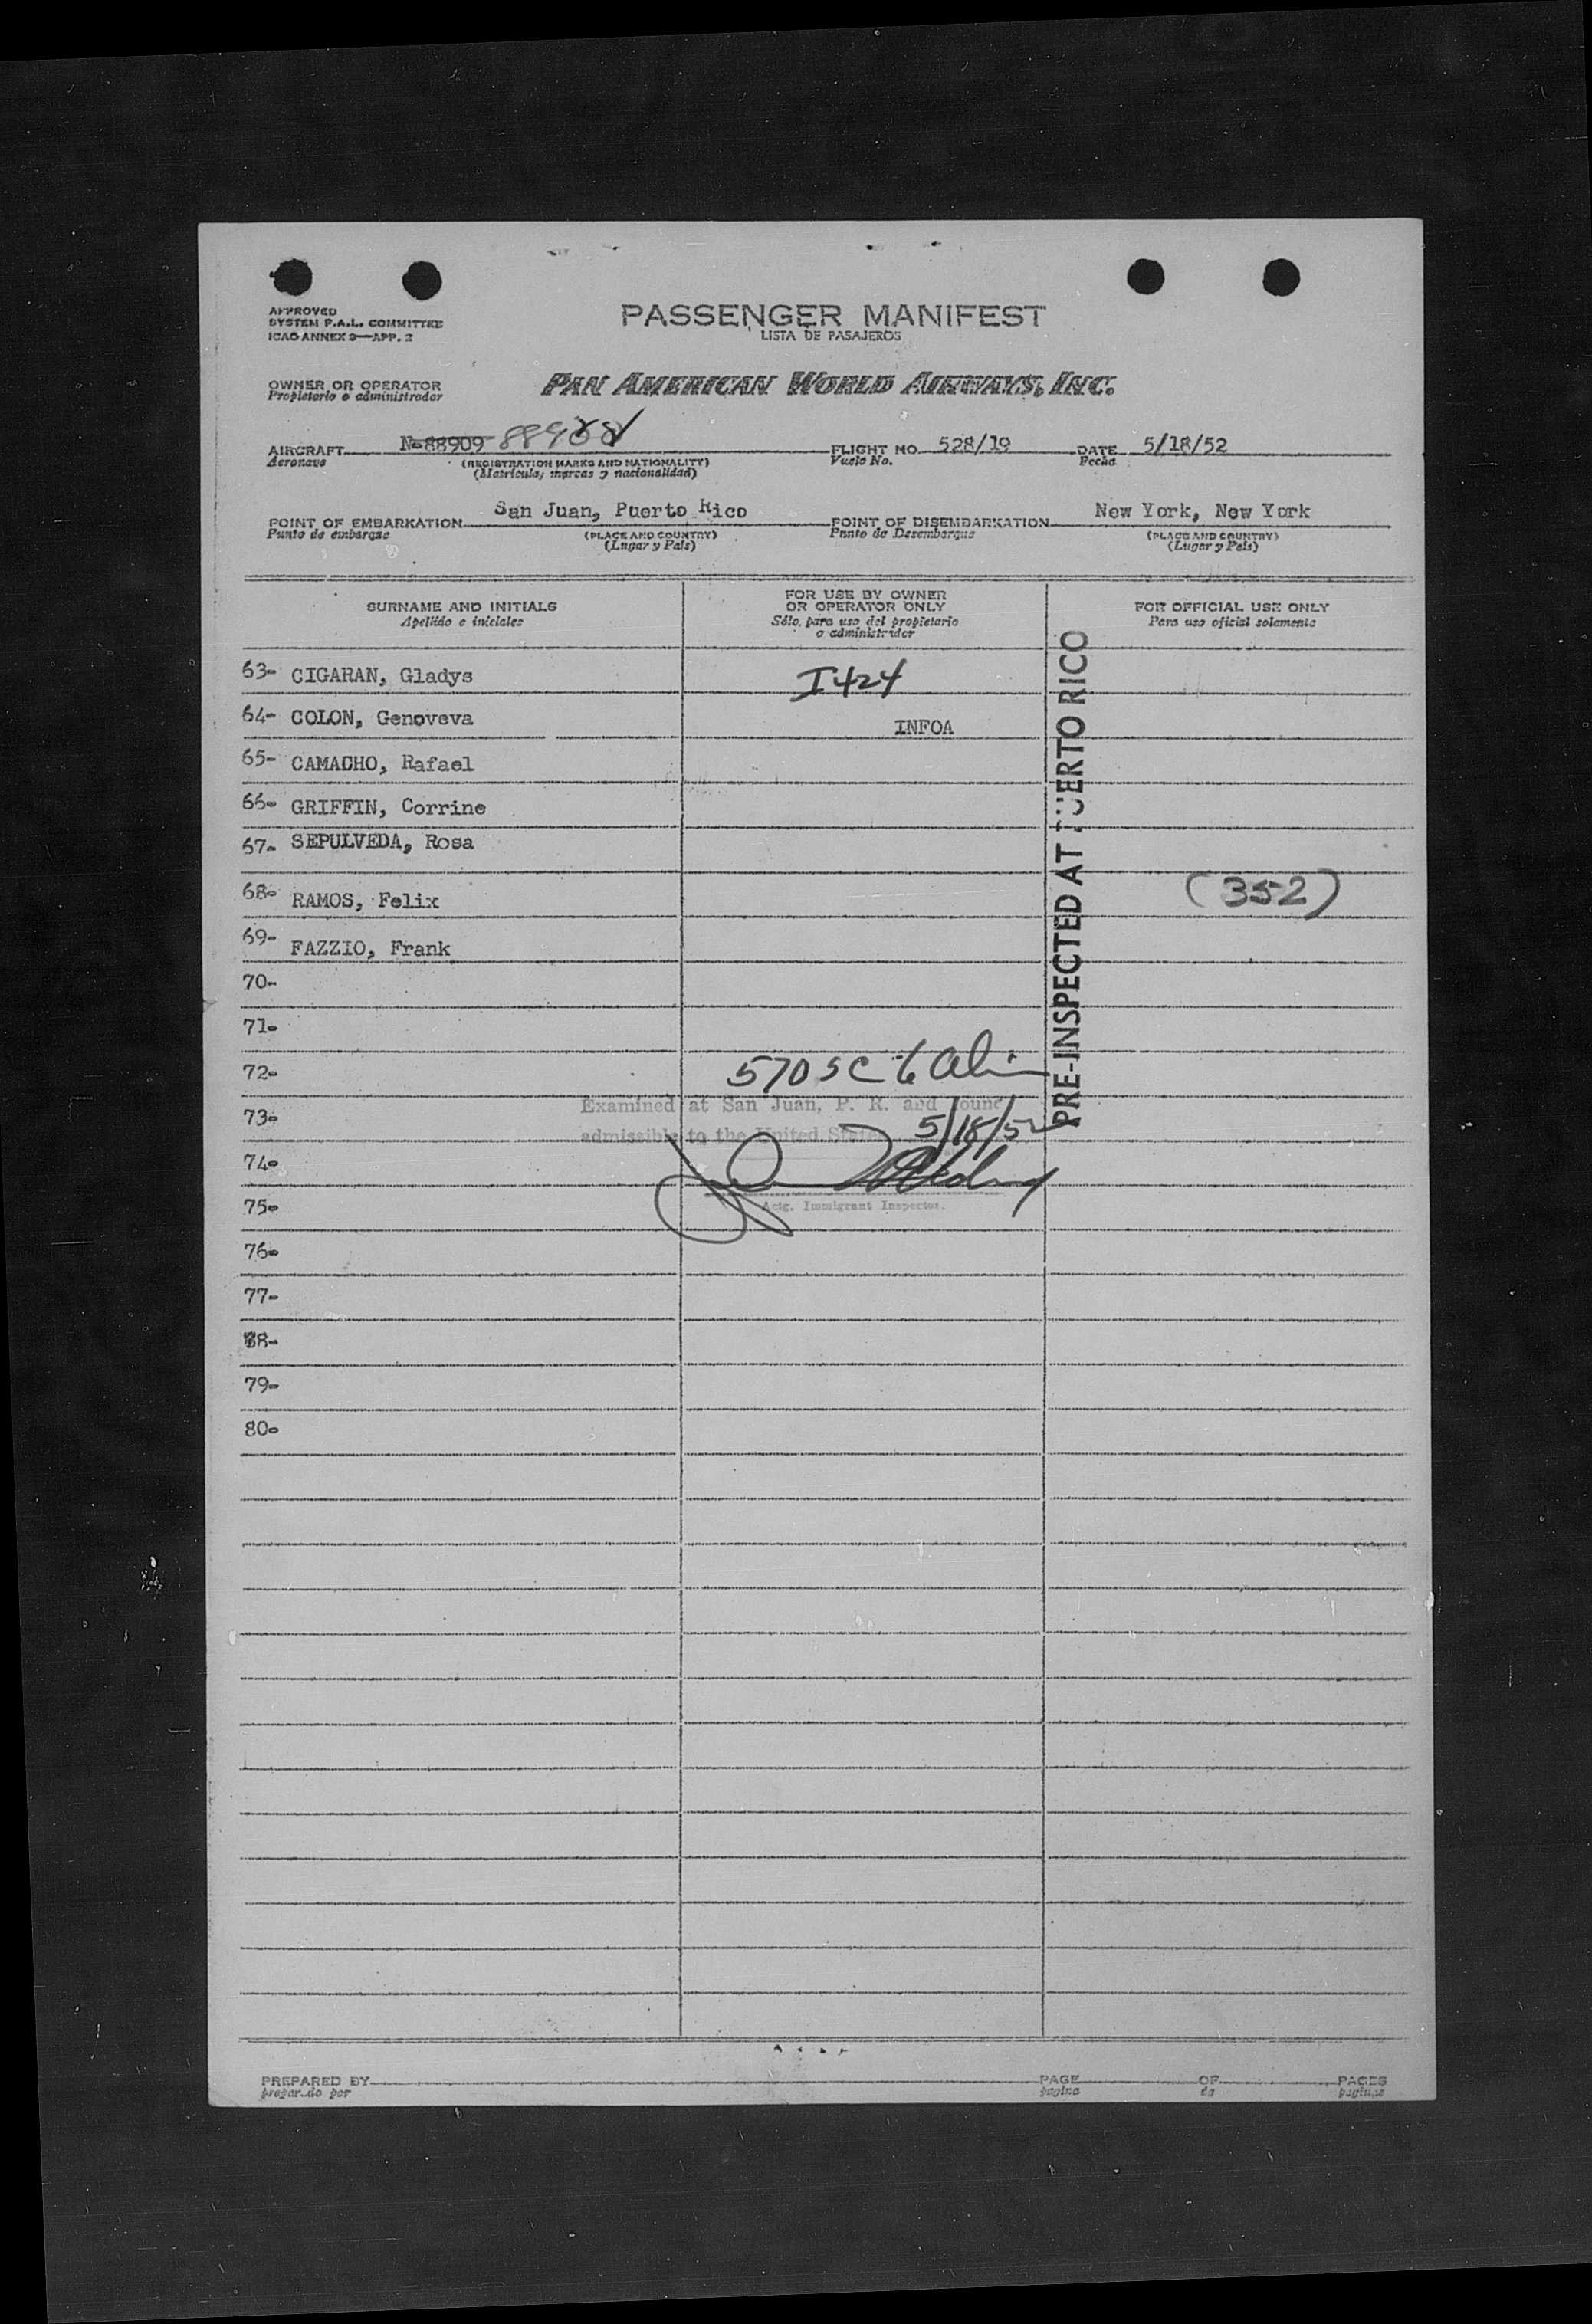 APPROVED
SYSTEM F.A.L. COMMITTEE
ICAO ANNEX 9—APP. 2
PASSENGER MANIFEST
LISTA DE PASAJEROS
OWNER OR OPERATOR
Propietario o administrador
PAN AMERICAN WORLD AIRWAYS, INC.
AIRCRAFT N-88909
Aeronave
(REGISTRATION MARKS AND NATIONALITY)
(Matricula, marcas y nacionalidad)
FLIGHT NO. 528/19
Vuelo No.
DATE 5/18/52
Fecha
POINT OF EMBARKATION San Juan, Puerto Rico
Punto de embarque
(PLACE AND COUNTRY)
(Lugar y País)
POINT OF DISEMBARKATION New York, New York
Punto de Desembarque
(PLACE AND COUNTRY)
(Lugar y País)
SURNAME AND INITIALS
Apellido e iniciales
FOR USE BY OWNER
OR OPERATOR ONLY
Sólo para uso del propietario
o administrador
FOR OFFICIAL USE ONLY
Para uso oficial solamente
63- CIGARAN, Gladys I424
64- COLON, Genoveva INFOA
65- CAMACHO, Rafael
66- GRIFFIN, Corrine
67- SEPULVEDA, Rosa
68- RAMOS, Felix (352)
69- FAZZIO, Frank
PRE-INSPECTED AT PUERTO RICO
70-
71-
72- 570 SC 6
73- Examined at San Juan, P. R. and found
admissible to the United States 5/18/52
74-
75- Actg. Immigrant Inspector.
76-
77-
78-
79-
80-
PREPARED BY
preparado por
PAGE OF PAGES
pagina de paginas